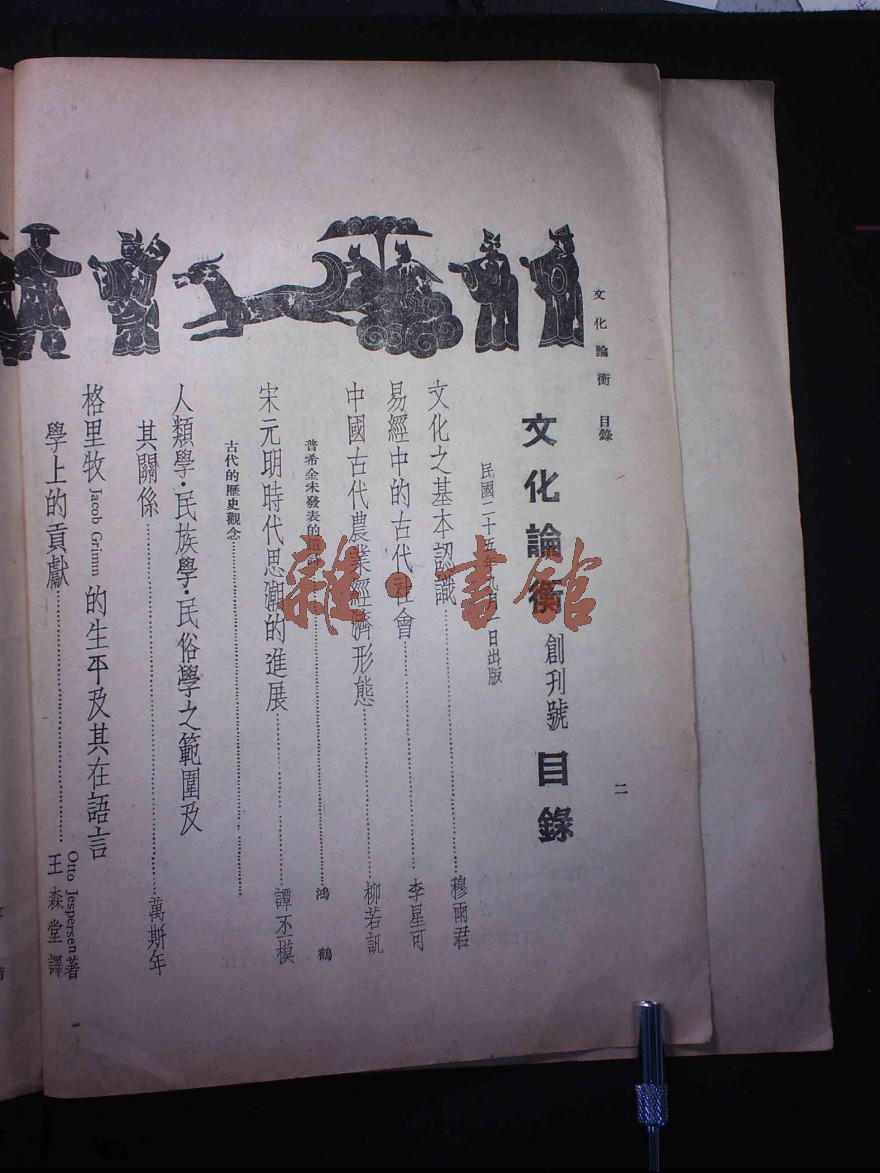 文化論衡 目錄
二
文化論衡 創刊號 目錄
民國二十五年九月一日出版
文化之基本認識……穆雨君
易經中的古代社會……李星可
中國古代農業經濟形態……柳若訊
普希金未發表的遺詩……鴻鶴
宋元明時代思潮的進展……譚丕模
古代的歷史觀念……
人類學·民族學·民俗學之範圍及
其關係……萬斯年
格里牧 Jacob Grimm 的生平及其在語言
學上的貢獻……Otto Jespersen著
王森堂譯
雜·書館